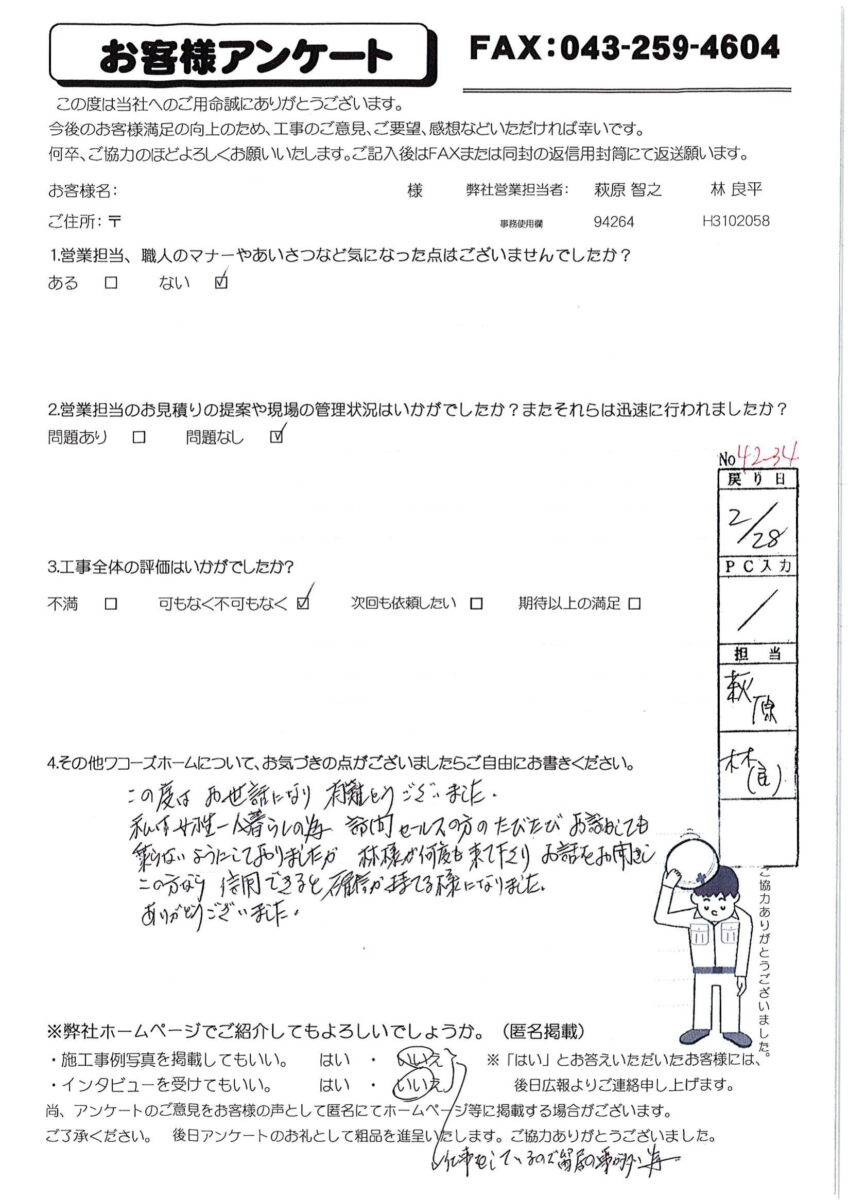 お客様アンケート
FAX:043-259-4604
この度は当社へのご用命誠にありがとうございます。
今後のお客様満足の向上のため、工事のご意見、ご要望、感想などいただければ幸いです。
何卒、ご協力のほどよろしくお願いいたします。ご記入後はFAXまたは同封の返信用封筒にて返送願います。
お客様名: 様 弊社営業担当者: 萩原 智之 林 良平
ご住所:〒 事務使用欄 94264 H3102058
1.営業担当、職人のマナーやあいさつなど気になった点はございませんでしたか?
ある □ ない ☑
2.営業担当のお見積りの提案や現場の管理状況はいかがでしたか?またそれらは迅速に行われましたか?
問題あり □ 問題なし ☑
No 42-34
戻り日
2/28
PC入力
/
担当
萩原
林(良)
3.工事全体の評価はいかがでしたか?
不満 □ 可もなく不可もなく ☑ 次回も依頼したい □ 期待以上の満足 □
4.その他ワコーズホームについて、お気づきの点がございましたらご自由にお書きください。
この度は お世話になり 有難とうございました.
私は女性一人暮らしの為 訪問セールスの方のたびたび お話しても
乗らないようにしておりましたが 林様が何度も来て下さり お話をお聞きし
この方なら 信用できると 確信が持てる様になりました.
ありがとうございました.
ご協力ありがとうございました。
※弊社ホームページでご紹介してもよろしいでしょうか。(匿名掲載)
・施工事例写真を掲載してもいい。 はい ・ いいえ ※「はい」とお答えいただいたお客様には、
・インタビューを受けてもいい。 はい ・ いいえ 後日広報よりご連絡申し上げます。
尚、アンケートのご意見をお客様の声として匿名にてホームページ等に掲載する場合がございます。
ご了承ください。 後日アンケートのお礼として粗品を進呈いたします。ご協力ありがとうございました。
仕事をしているので留守の事が多い為